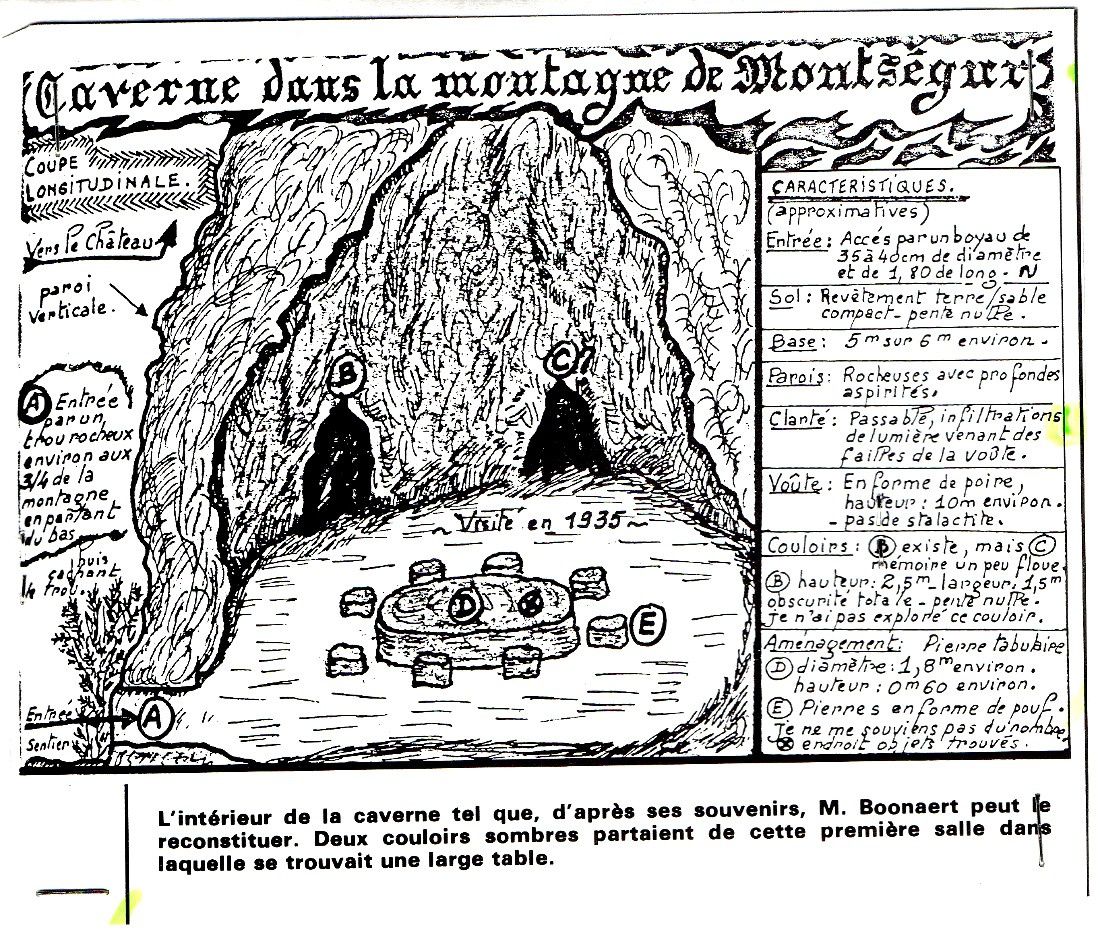 Caverne dans la montagne de Montségur
COUPE
LONGITUDINALE.
Vers le Château
paroi
verticale.
A Entrée
par un
trou rocheux
environ aux
3/4 de la
montagne
en partant
du bas
buis
cachant
le trou.
Entrée
A
Sentier
B
C
~ Visité en 1935 ~
D
E
CARACTERISTIQUES.
(approximatives)
Entrée: Accés par un boyau de
35 à 40cm de diamètre
et de 1,80 de long - N
Sol: Revêtement terre/sable
compact - pente nulle.
Base: 5m sur 6m environ.
Parois: Rocheuses avec profondes
aspirités.
Clarté: Passable, infiltrations
de lumière venant des
failles de la voûte.
Voûte: En forme de poire,
hauteur: 10m environ.
- pas de stalactite.
Couloirs: B existe, mais C
mémoire un peu floue.
B hauteur: 2,5m largeur: 1,5m
obscurité totale - pente nulle.
je n'ai pas exploré ce couloir.
Aménagement: Pierre tabulaire
D diamètre: 1,8m environ.
hauteur: 0m60 environ.
E Pierres en forme de pouf.
Je ne me souviens pas du nombre,
⊗ endroit objets trouvés.
L'intérieur de la caverne tel que, d'après ses souvenirs, M. Boonaert peut le
reconstituer. Deux couloirs sombres partaient de cette première salle dans
laquelle se trouvait une large table.